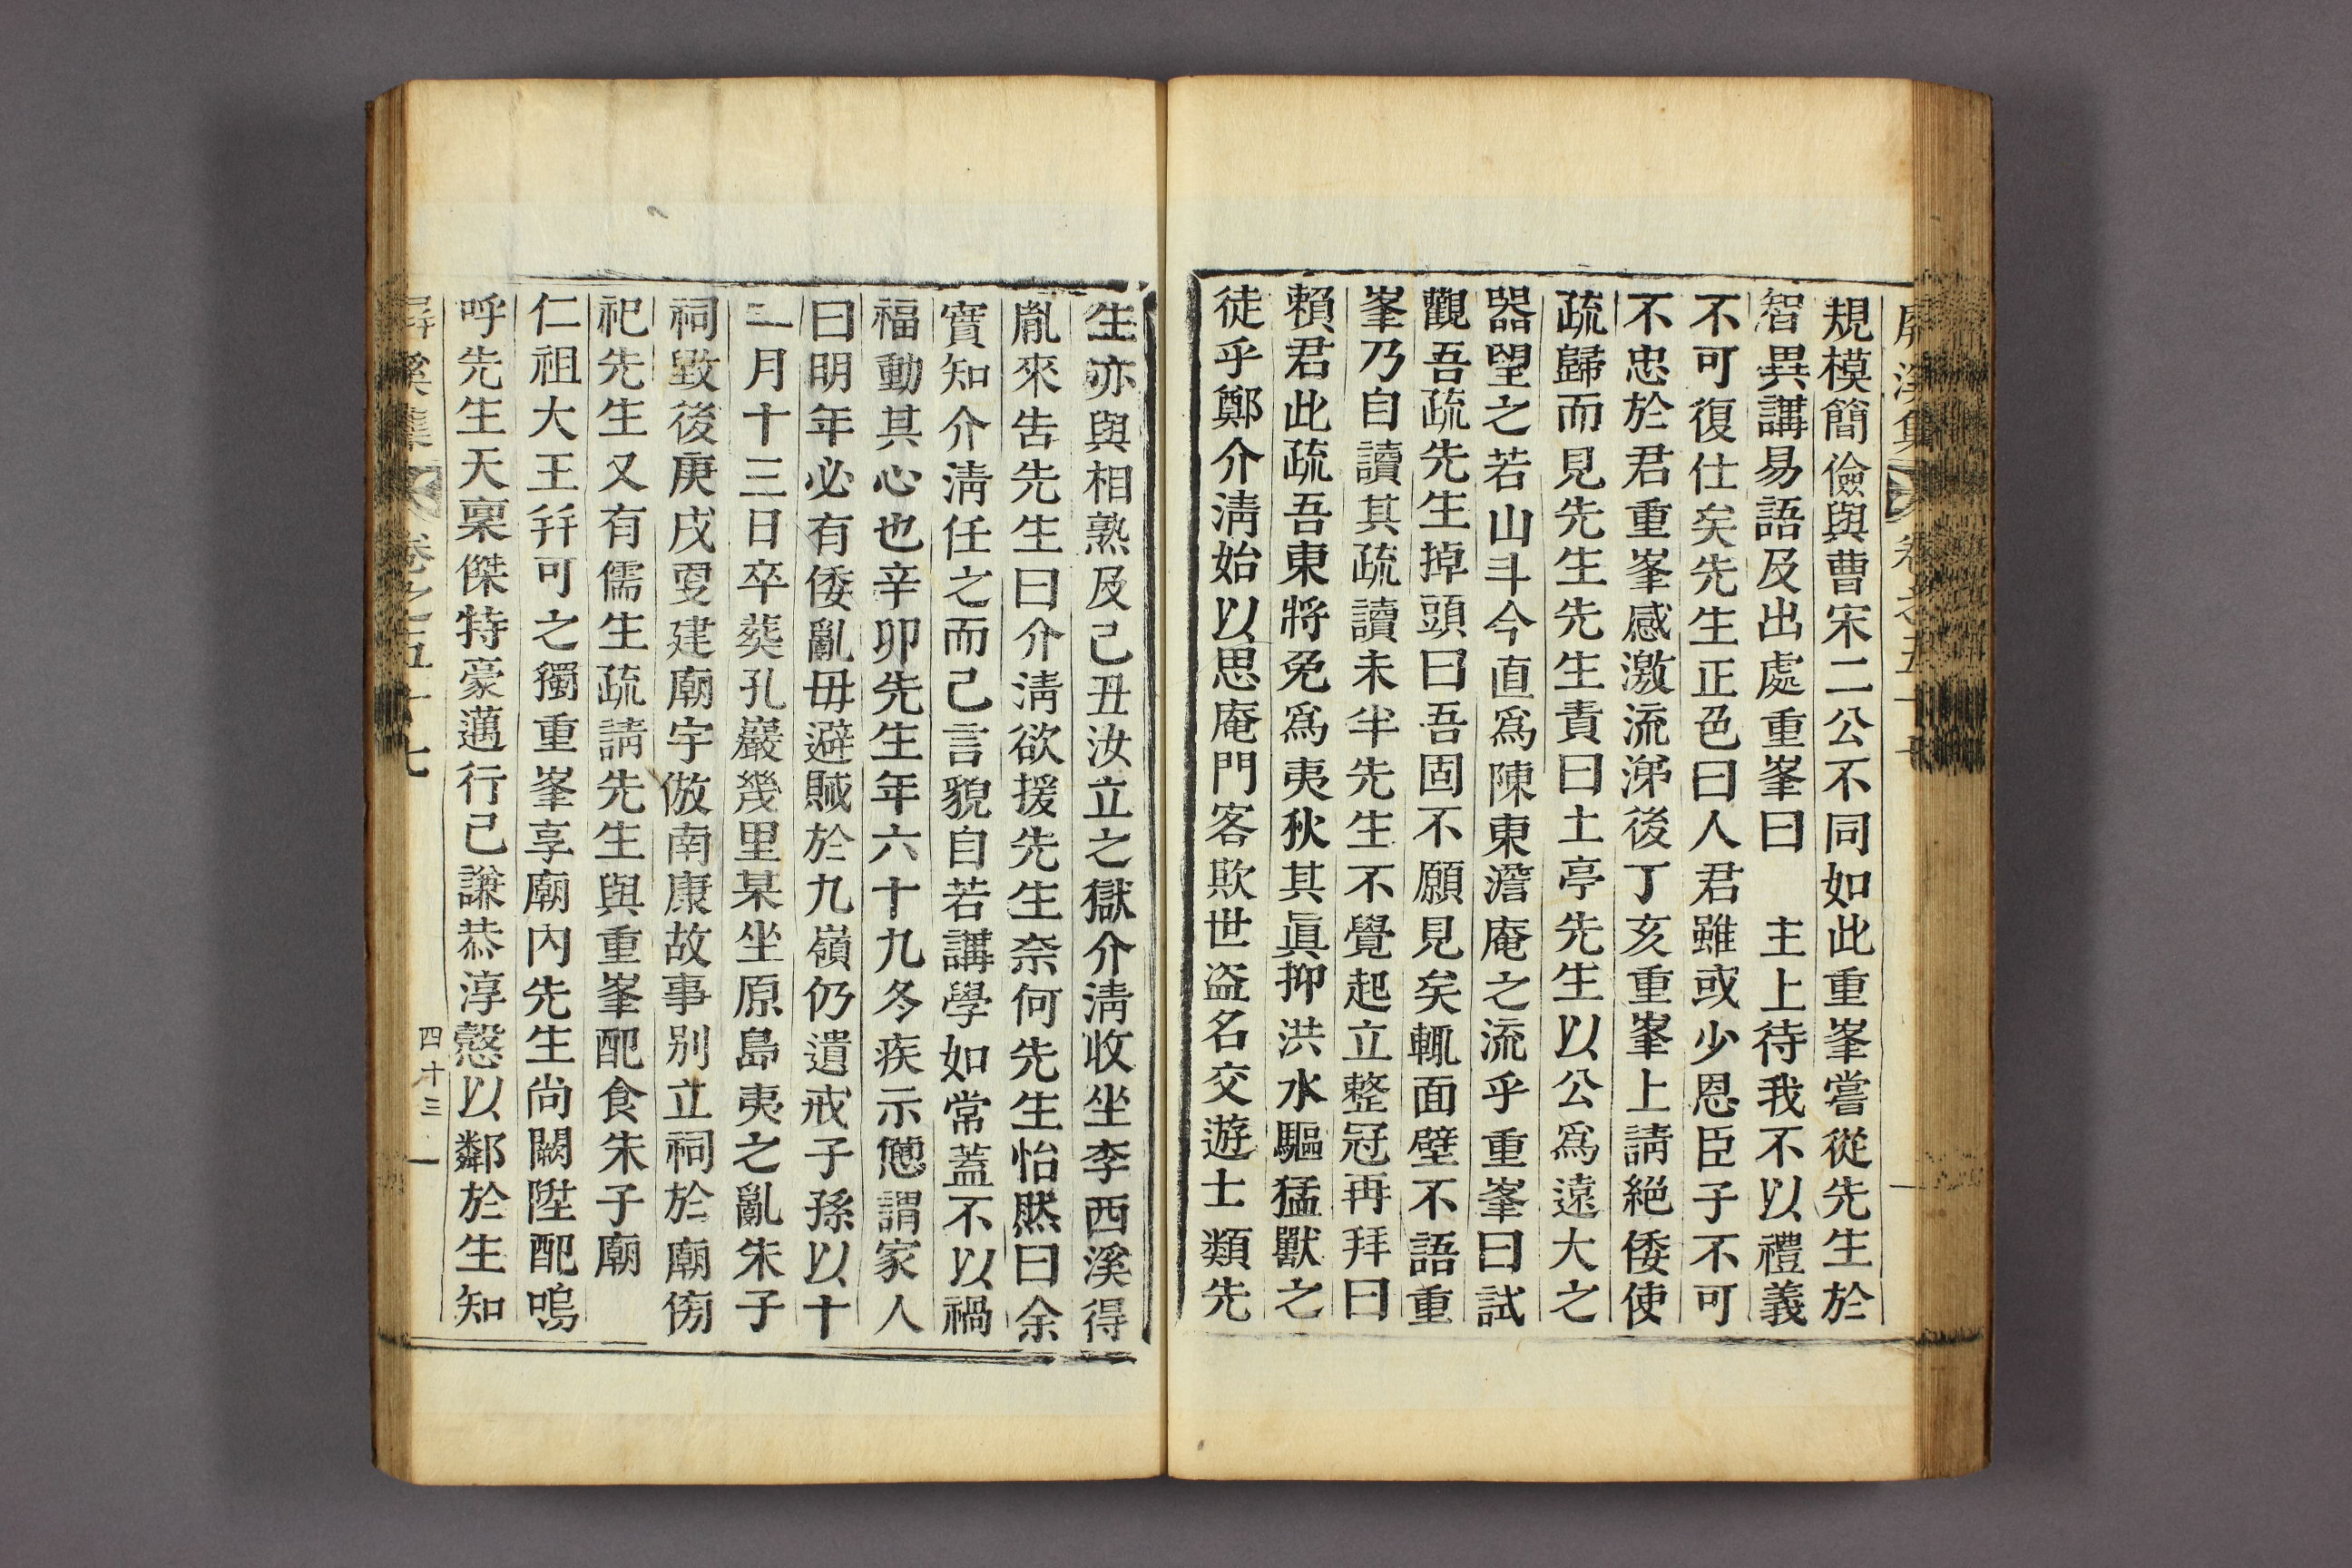 規模簡儉與曹宋二公不同如此重峯嘗從先生於
智異講易語及出處重峯曰 主上待我不以禮義
不可復仕矣先生正色曰人君雖或少恩臣子不可
不忠於君重峯感激流涕後丁亥重峯上請絕倭使
疏歸而見先生先生責曰土亭先生以公爲遠大之
器望之若山斗今直爲陳東澹庵之流乎重峯曰試
觀吾疏先生掉頭曰吾固不願見矣輒面壁不語重
峯乃自讀其疏讀未半先生不覺起立整冠再拜曰
賴君此疏吾東將免爲夷狄其眞抑洪水驅猛獸之
徒乎鄭介淸始以思庵門客欺世盜名交遊士類先
生亦與相熟及己丑汝立之獄介淸收坐李西溪得
胤來告先生曰介淸欲援先生奈何先生怡然曰余
實知介淸任之而已言貌自若講學如常蓋不以禍
福動其心也辛卯先生年六十九冬疾示憊謂家人
曰明年必有倭亂毋避賊於九嶺仍遺戒子孫以十
二月十三日卒葬孔巖幾里某坐原島夷之亂朱子
祠毀後庚戌更建廟宇倣南康故事別立祠於廟傍
祀先生又有儒生疏請先生與重峯配食朱子廟
仁祖大王幷可之獨重峯享廟內先生尙闕陞配嗚
呼先生天稟傑特豪邁行己謙恭淳慤以鄰於生知
屛溪集 卷之五十七
四十三